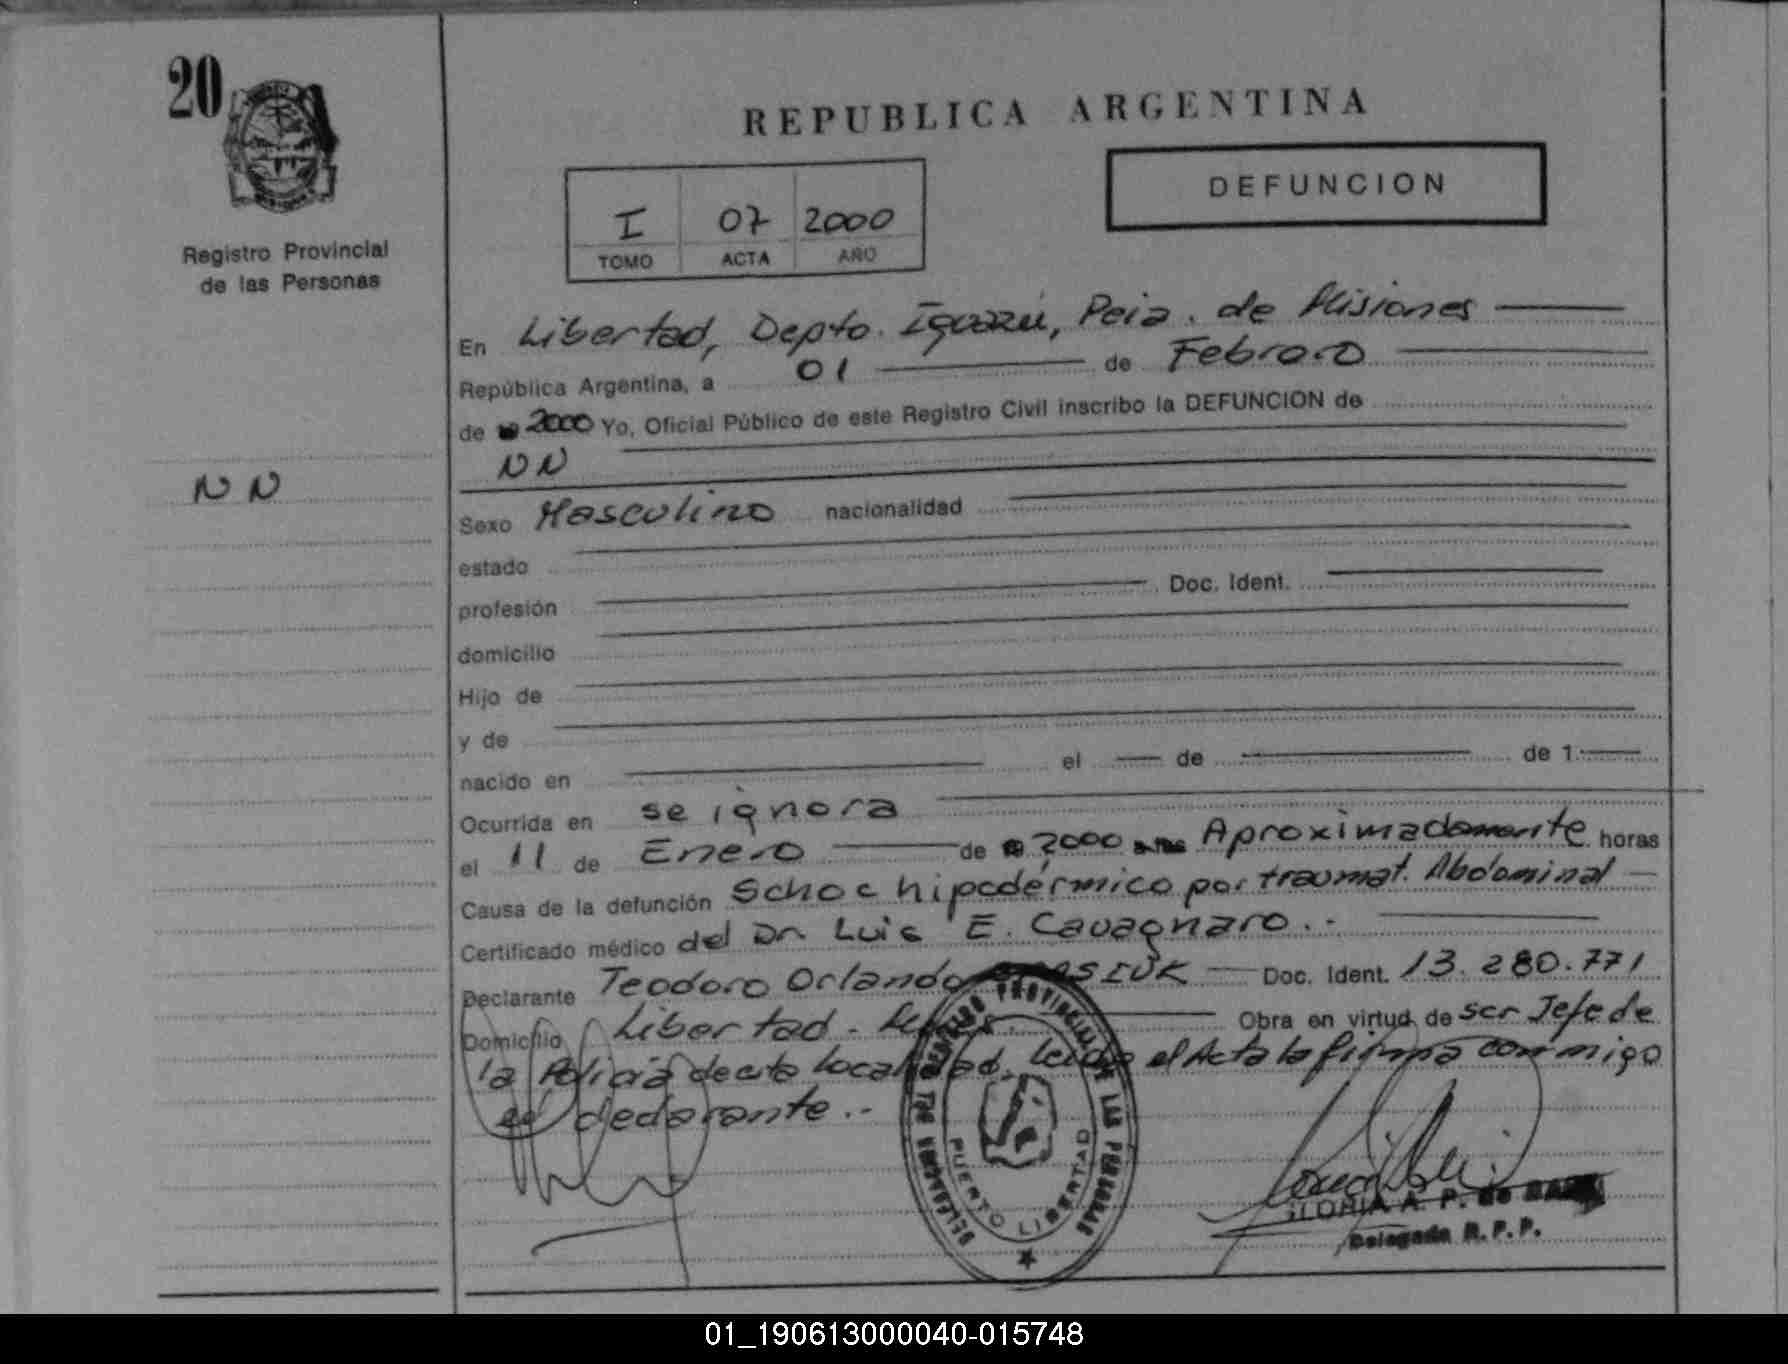 20
Registro Provincial
de las Personas
REPUBLICA ARGENTINA
DEFUNCION
I 07 2000
TOMO ACTA AÑO
En Libertad, Depto. Iguazú, Pcia. de Misiones
República Argentina, a 01 de Febrero
de 2000 Yo, Oficial Público de este Registro Civil inscribo la DEFUNCION de
NN
NN
Sexo Masculino nacionalidad
estado
profesión Doc. Ident.
domicilio
Hijo de
y de
nacido en el de de 1
Ocurrida en se ignora
el 11 de Enero de 2000 Aproximadamente horas
Causa de la defunción Schoc hipodérmico por traumat. Abdominal
Certificado médico del Dr Luis E. Cavagnaro.-
Declarante Teodoro Orlando Doc. Ident. 13.280.771
Domicilio Libertad. Obra en virtud de ser Jefe de
la Policia de esta localidad. Leida el Acta la firma conmigo
el declarante..-
DELEGACION REGISTRO PROVINCIAL DE LAS PERSONAS
PUERTO LIBERTAD
A. P. de
Delegada R. P. P.
01_190613000040-015748